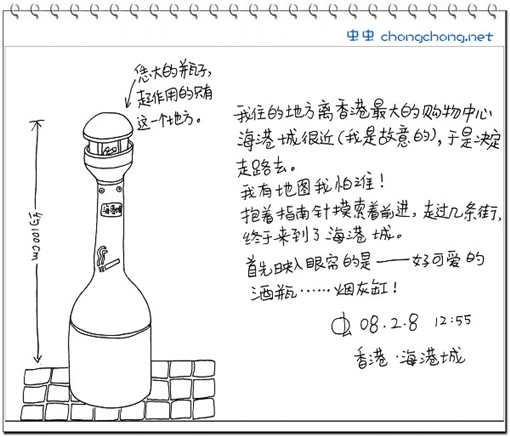 虫虫 changchong.net
恁大的瓶子,
起作用的只有
这一个地方。
约100cm
我住的地方离香港最大的购物中心
海港城很近(我是故意的),于是决定
走路去。
我有地图我怕谁!
抱着指南针摸索着前进,走过几条街,
终于来到了海港城。
首先映入眼帘的是——好可爱的
酒瓶……烟灰缸!
08.2.8 12:55
香港·海港城